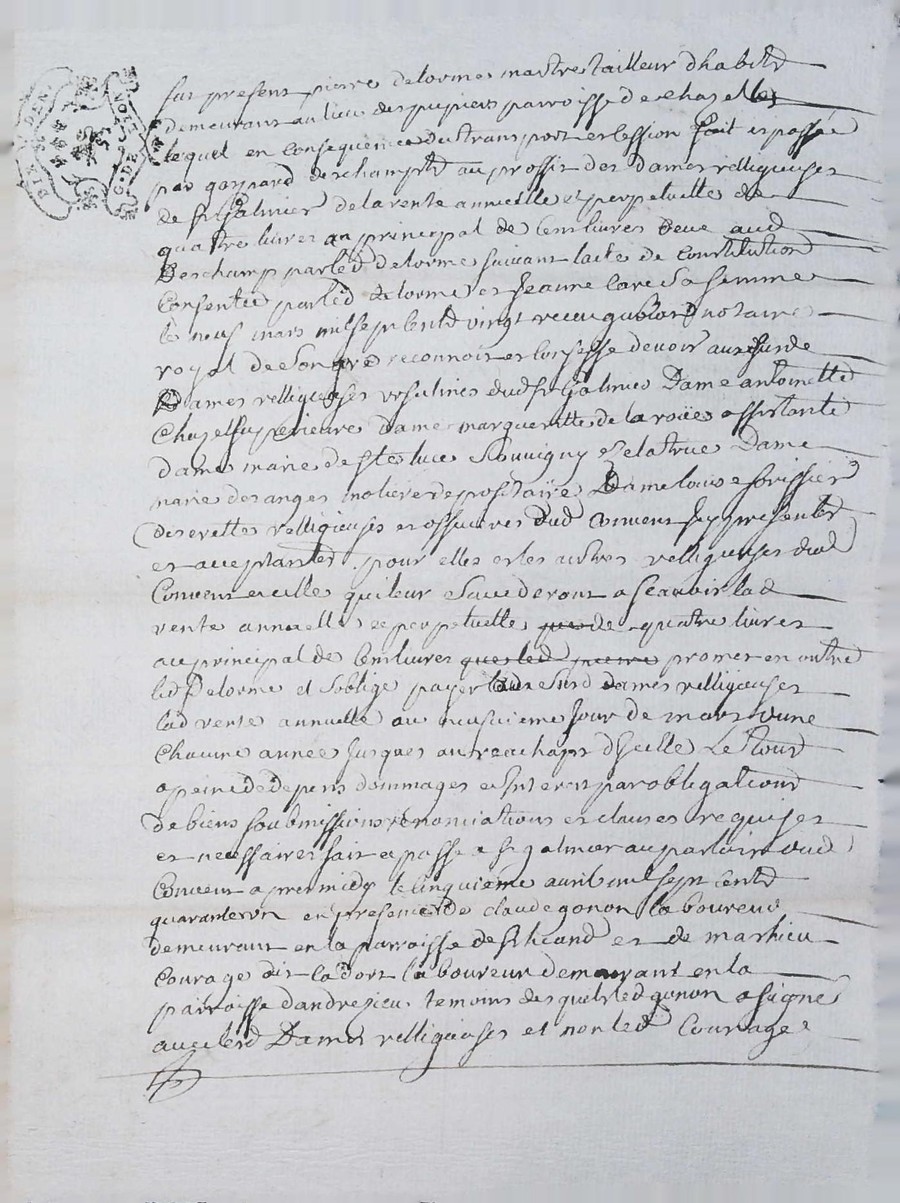 fut present pierre delorme maitre tailleur dhabitz
demeurant au lieu des pupiers parroisse de chazelles
lequel en consequence du transport et cession fait et passée
par gaspard deschampts au proffit des dames relligieuses
de st galmier de la rente annuelle et perpetuelle de
quatre livres au principal de cent livres deue aud
Deschamp par led delorme suivant lacte de Constitution
Consentie par led delorme et Jeanne sa femme
le neuf mars mil sept centz vingt receu notaire
royal de reconnoit et confesse devoir auxsusde
Dames relligieuses ursulines dud st Galmier Dame antoinette
Chazel superieure dame margueritte de la roüe assistante
dame marie de ste luce Souvigny zelatrice Dame
marie des anges molieres depositaire Dame louise forissier
discrettes relligieuses et officieres dud Convent icy presentes
et acceptantes pour elles et les autres relligieuses dud
Convent et celle qui leur succederont a scavoir lad
rente annuelle et perpetuelle de quatre livres
au principal de Cent livres promet en outre
led Delorme et soblige payer auxsusd dames relligieuses
lad rente annuelle au neufvieme Jour de mars dune
Chacune année Jusques au reachapt dIcelle Le tout
a peine de depens dommages et Interest par obligations
de biens soubmissions renonciations et clauses requises
et necessaires fait et passé a st galmier au parloir dud
Convent apres midy le cinquieme avril mil sept centz
quarante un en presence de claude gonon laboureur
demeurant en la parroisse de et de mathieu
Courage dit ladort laboureur demeurant en la
parroisse dandrezieu temoins desquels led gonon a signé
avec lesd Dames relligieuses et non led Courage